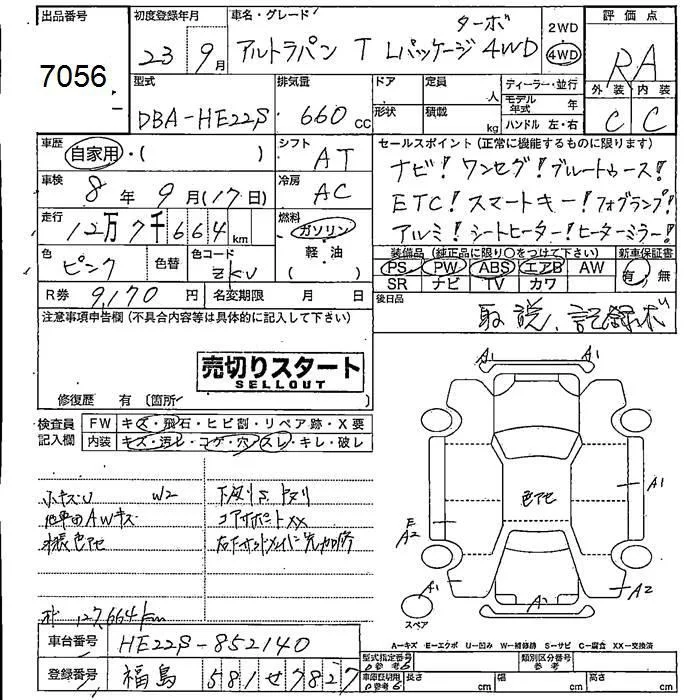 出品番号
7056
初度登録年月
23年9月
車名・グレード
ターボ
アルトラパン T Lパッケージ 4WD
2WD
4WD
評価点
RA
外装 内装
C C
型式
DBA-HE22S
排気量
660 cc
ドア
定員
人
形状
積載
kg
ディーラー・並行
モデル年式 年
ハンドル 左・右
車歴
自家用・( )
シフト
AT
車検
8年9月(17日)
冷房
AC
走行
12万7千664km
燃料
ガソリン
軽・油
( )
色
ピンク
色替
色コード
ZKU
R券 9,170円
名変期限 月 日
セールスポイント(正常に機能するものに限ります)
ナビ!ワンセグ!ブルートゥース!
ETC!スマートキー!フォグランプ!
アルミ!シートヒーター!ヒーターミラー!
装備品(純正品に限り○をつけて下さい)
新車保証書
PS PW ABS エアB AW
SR ナビ TV カワ
有 無
後日品
取説、記録ボ
注意事項申告欄(不具合内容等は具体的に記入して下さい)
売切りスタート
SELLOUT
修復歴 有(箇所
検査員記入欄
FW キズ・飛石・ヒビ割・リペア跡・X要
内装 キズ・汚レ・コゲ・穴・スレ・キレ・破レ
小キズU W2
下廻りS
コアサポートXX
色アセ
127,664km
A1 A1
A1
E
A2
色アセ
A1
A2
スペア
A-キズ E-エクボ U-凹み W-補修跡 S-サビ C-腐食 XX-交換済
車台番号
HE22S-852140
登録番号
福島 581 せ 7827
型式指定番号
類別区分番号
長さ cm 幅 cm 高さ cm